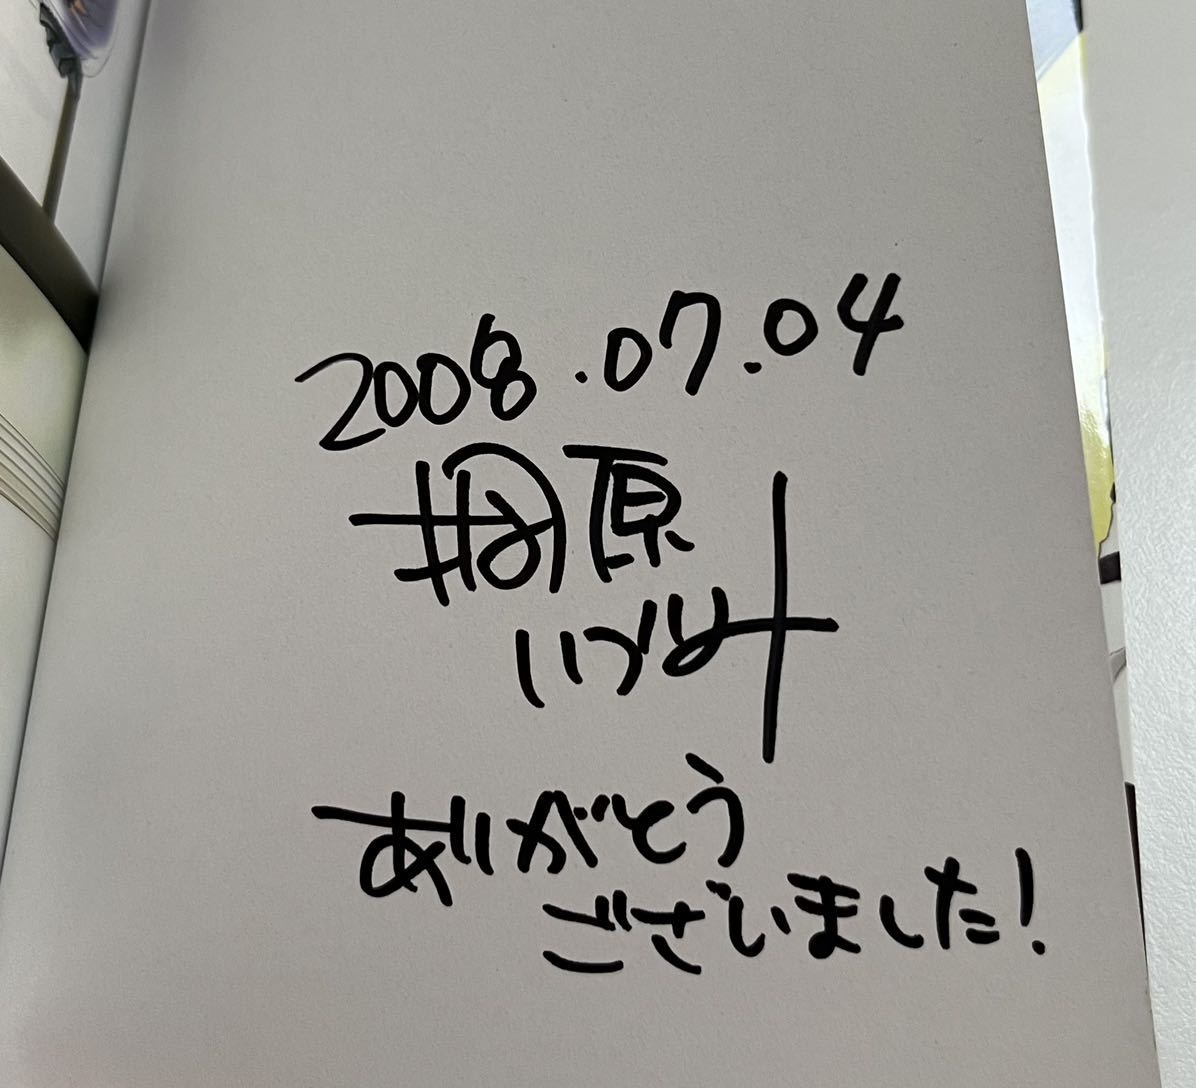 2008.07.04
桐原
いづみ
ありがとう
ございました!